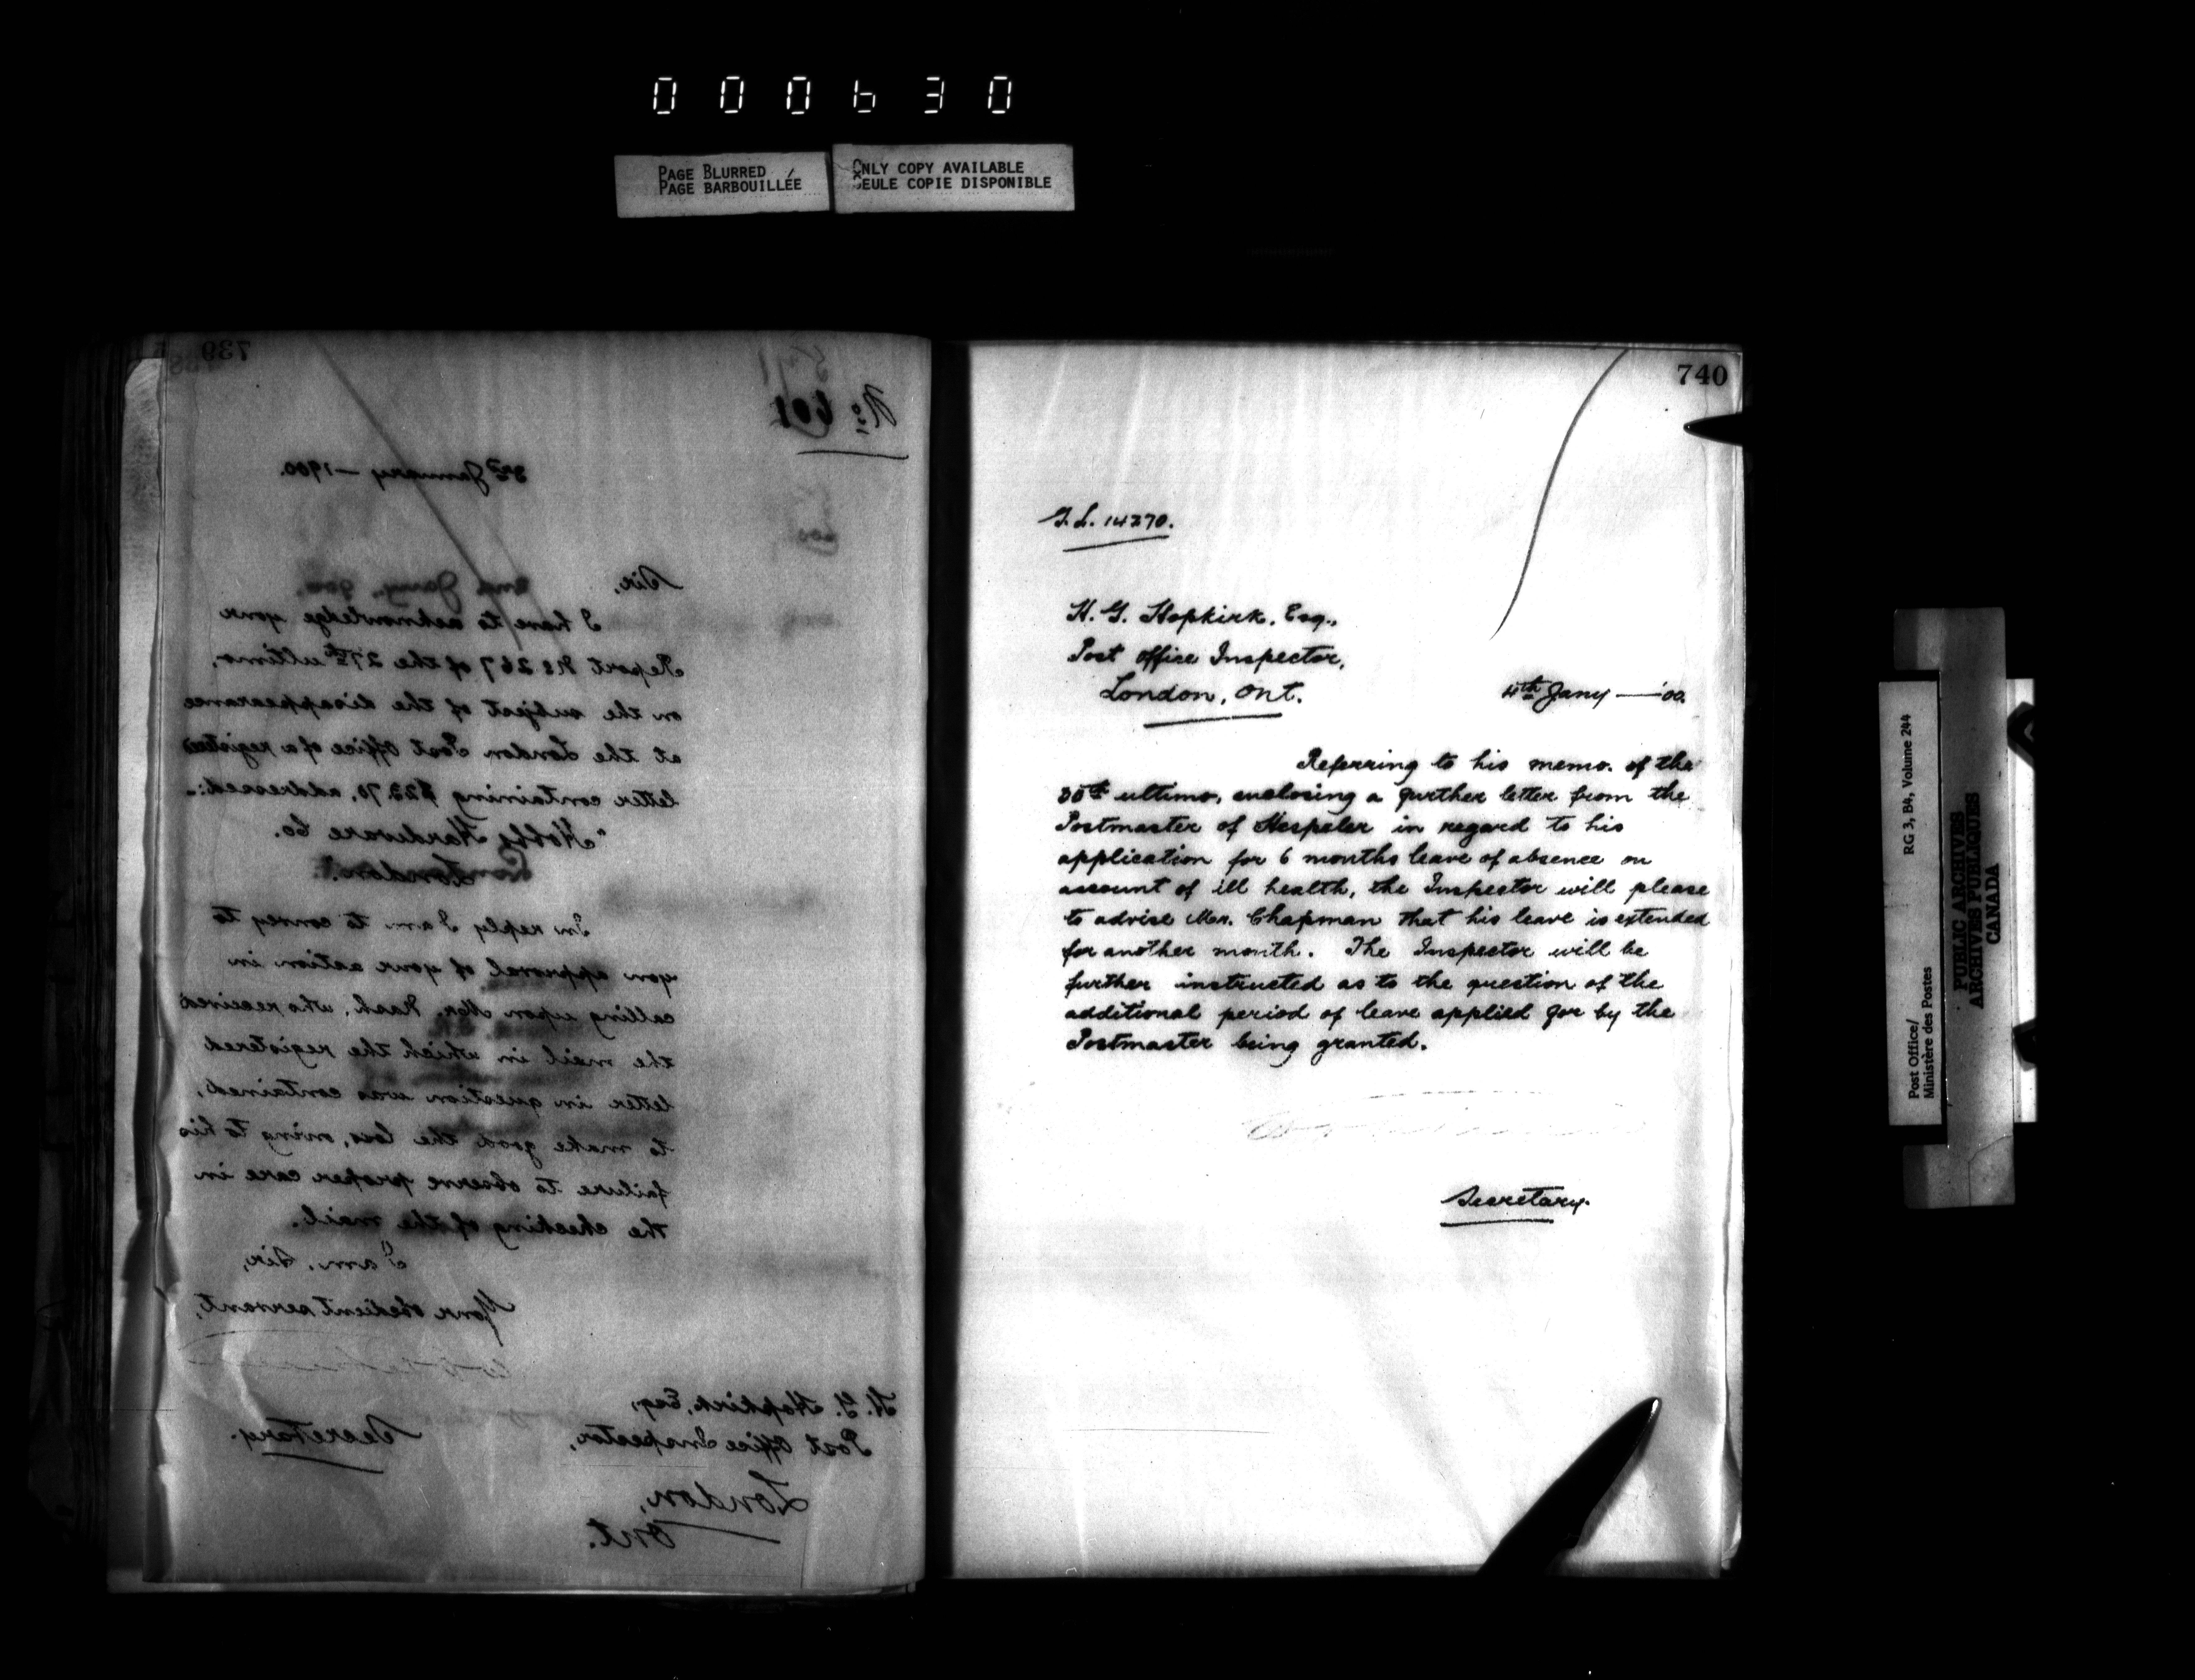 000630
PAGE BLURRED
PAGE BARBOUILLÉE
ONLY COPY AVAILABLE
SEULE COPIE DISPONIBLE
739
No. 601
3rd January — 1900.
Sir,
I have to acknowledge your
Report No 267 of the 27th ultimo,
on the subject of the disappearance
at the London Post Office of a registered
letter containing $22.70, addressed:-
"Hobbs Hardware Co.
London."
In reply I am to convey to
you approval of your action in
calling upon Mr. Nash, who received
the mail in which the registered
letter in question was contained,
to make good the loss, owing to his
failure to observe proper care in
the checking of the mail.
I am, Sir,
Your obedient servant,
Secretary.
H. G. Hopkirk, Esq,
Post Office Inspector,
London,
Ont.
740
G.L. 14270.
H. G. Hopkirk, Esq.,
Post Office Inspector,
London, Ont.
4th Jany — '00.
Referring to his memo. of the
30th ultimo, enclosing a further letter from the
Postmaster of Hespeler in regard to his
application for 6 months leave of absence on
account of ill health, the Inspector will please
to advise Mr. Chapman that his leave is extended
for another month. The Inspector will be
further instructed as to the question of the
additional period of leave applied for by the
Postmaster being granted.
Secretary.
Post Office/
Ministère des Postes
RG 3, B4, Volume 244
PUBLIC ARCHIVES
ARCHIVES PUBLIQUES
CANADA